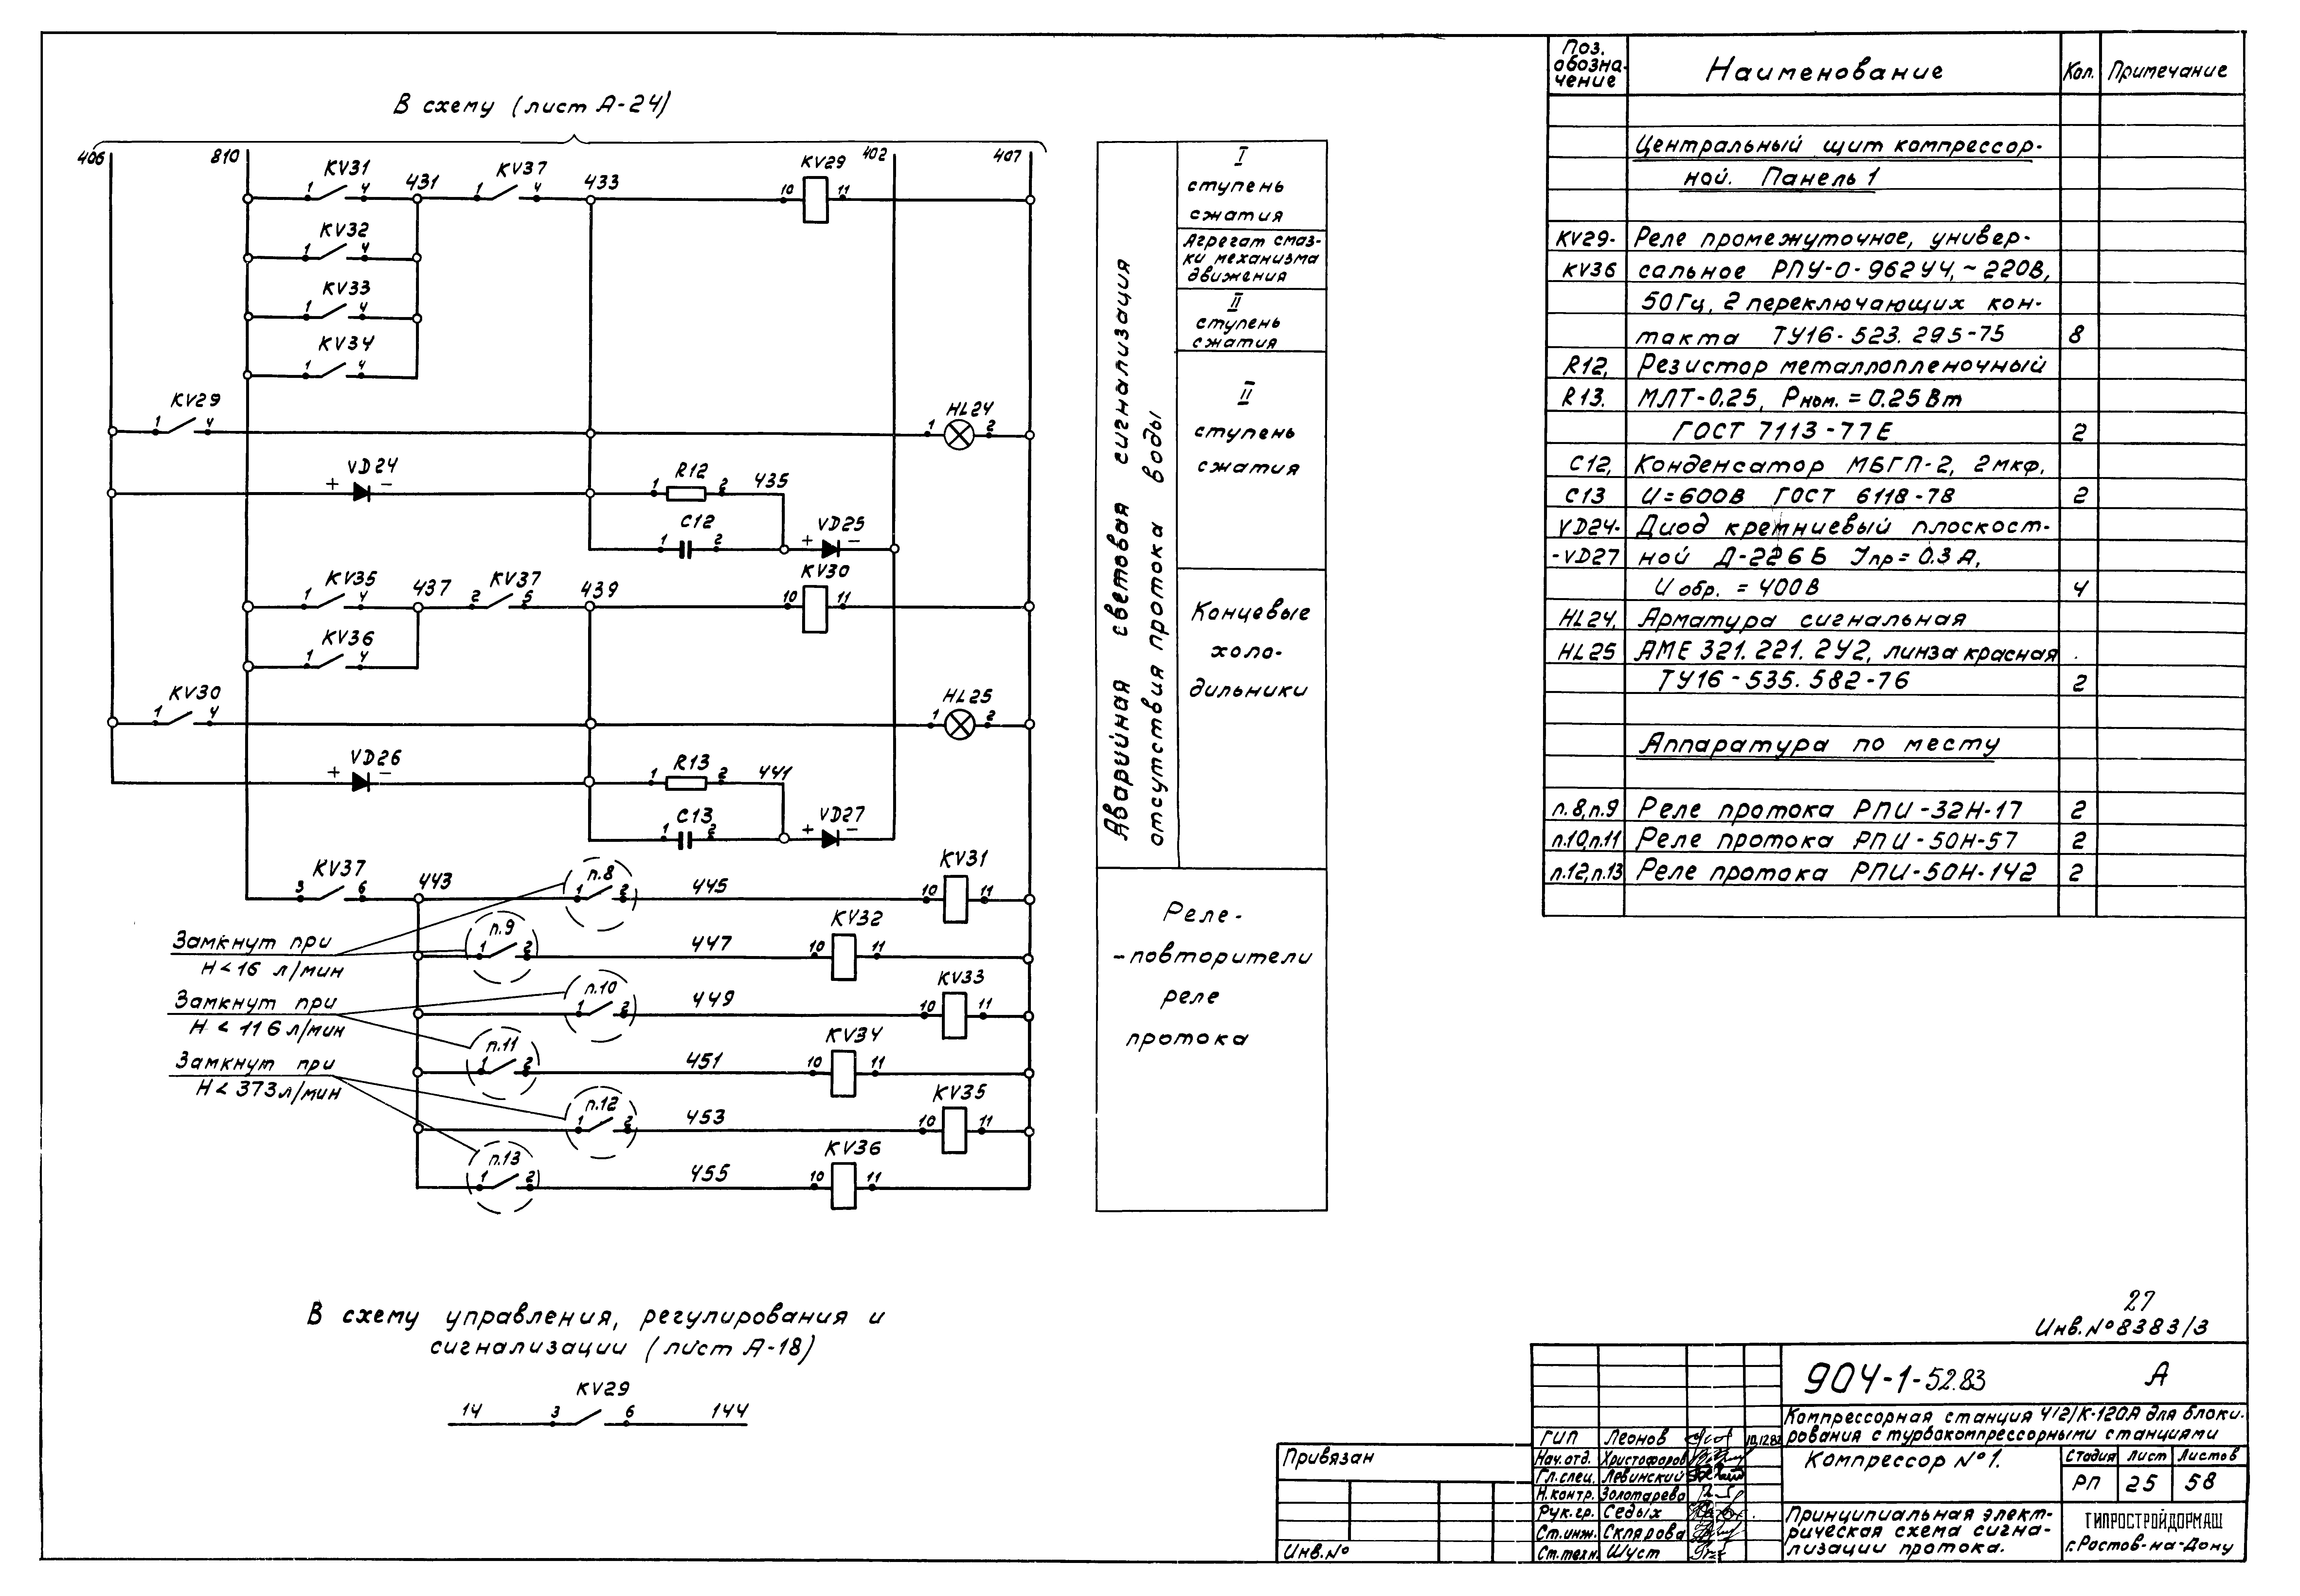 В схему (лист А-24)
406
810
402
407
KV31
1 4
431
KV37
1 4
433
KV29
10 11
KV32
1 4
KV33
1 4
KV34
1 4
KV29
1 4
HL24
1 2
VD24
+ -
R12
1 2
435
C12
1 2
VD25
+ -
KV35
1 4
437
KV37
2 5
439
KV30
10 11
KV36
1 4
KV30
1 4
HL25
1 2
VD26
+ -
R13
1 2
441
C13
1 2
VD27
+ -
KV37
3 6
443
п.8
1 2
445
KV31
10 11
п.9
1 2
447
KV32
10 11
п.10
1 2
449
KV33
10 11
п.11
1 2
451
KV34
10 11
п.12
1 2
453
KV35
10 11
п.13
1 2
455
KV36
10 11
Замкнут при
Н < 16 л/мин
Замкнут при
Н < 116 л/мин
Замкнут при
Н < 373 л/мин
Аварийная световая сигнализация
отсутствия протока воды
I
ступень
сжатия
Агрегат смаз-
ки механизма
движения
II
ступень
сжатия
II
ступень
сжатия
Концевые
холо-
дильники
Реле-
-повторители
реле
протока
В схему управления, регулирования и
сигнализации (лист А-18)
KV29
14 3 6 144
Поз.
обозна-
чение
Наименование
Кол.
Примечание
Центральный щит компрессор-
ной. Панель 1
KV29- Реле промежуточное, универ-
KV36 сальное РПУ-0-962У4, ~220В,
50Гц, 2 переключающих кон-
такта ТУ16-523.295-75 8
R12, Резистор металлопленочный
R13. МЛТ-0,25, Рном. = 0.25Вт
ГОСТ 7113-77Е 2
C12, Конденсатор МБГП-2, 2мкф,
C13 U=600В ГОСТ 6118-78 2
VD24- Диод кремниевый плоскост-
-VD27 ной Д-226Б Iпр = 0.3А,
U обр. = 400В 4
HL24, Арматура сигнальная
HL25 АМЕ 321.221.2У2, линза красная
ТУ16-535.582-76 2
Аппаратура по месту
п.8,п.9 Реле протока РПИ-32Н-17 2
п.10,п.11 Реле протока РПИ-50Н-57 2
п.12,п.13 Реле протока РПИ-50Н-142 2
27
Инв.№8383/3
904-1-52.83 А
Компрессорная станция 4(2)К-120А для блоки-
рования с турбокомпрессорными станциями
Компрессор №1.
Стадия Лист Листов
РП 25 58
Принципиальная элект-
рическая схема сигна-
лизации протока.
ГИПРОСТРОЙДОРМАШ
г.Ростов-на-Дону
ГИП Леонов
Нач.отд. Христофоров
Гл.спец. Левинский
Н.контр. Золотарева
Рук.гр. Седых
Ст.инж. Склярова
Ст.техн. Шуст
Привязан
Инв.№